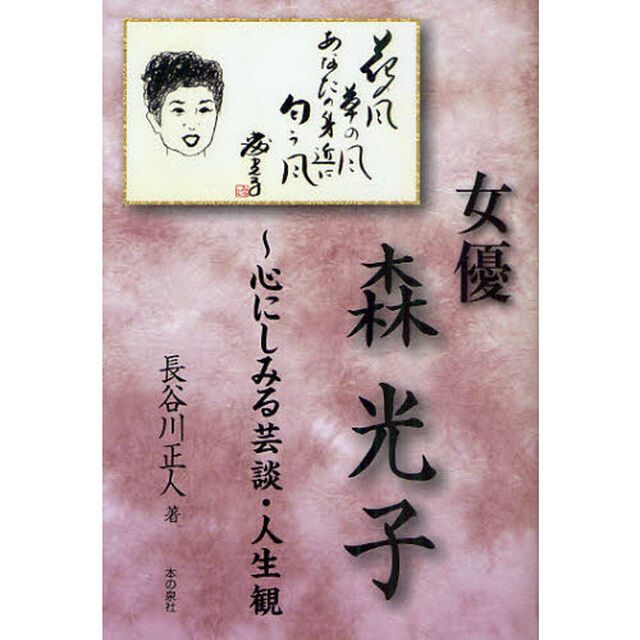 花風
草の風
あなたの身近に
匂う風
森光子
女優
森光子
～心にしみる芸談・人生観
長谷川正人 著
本の泉社